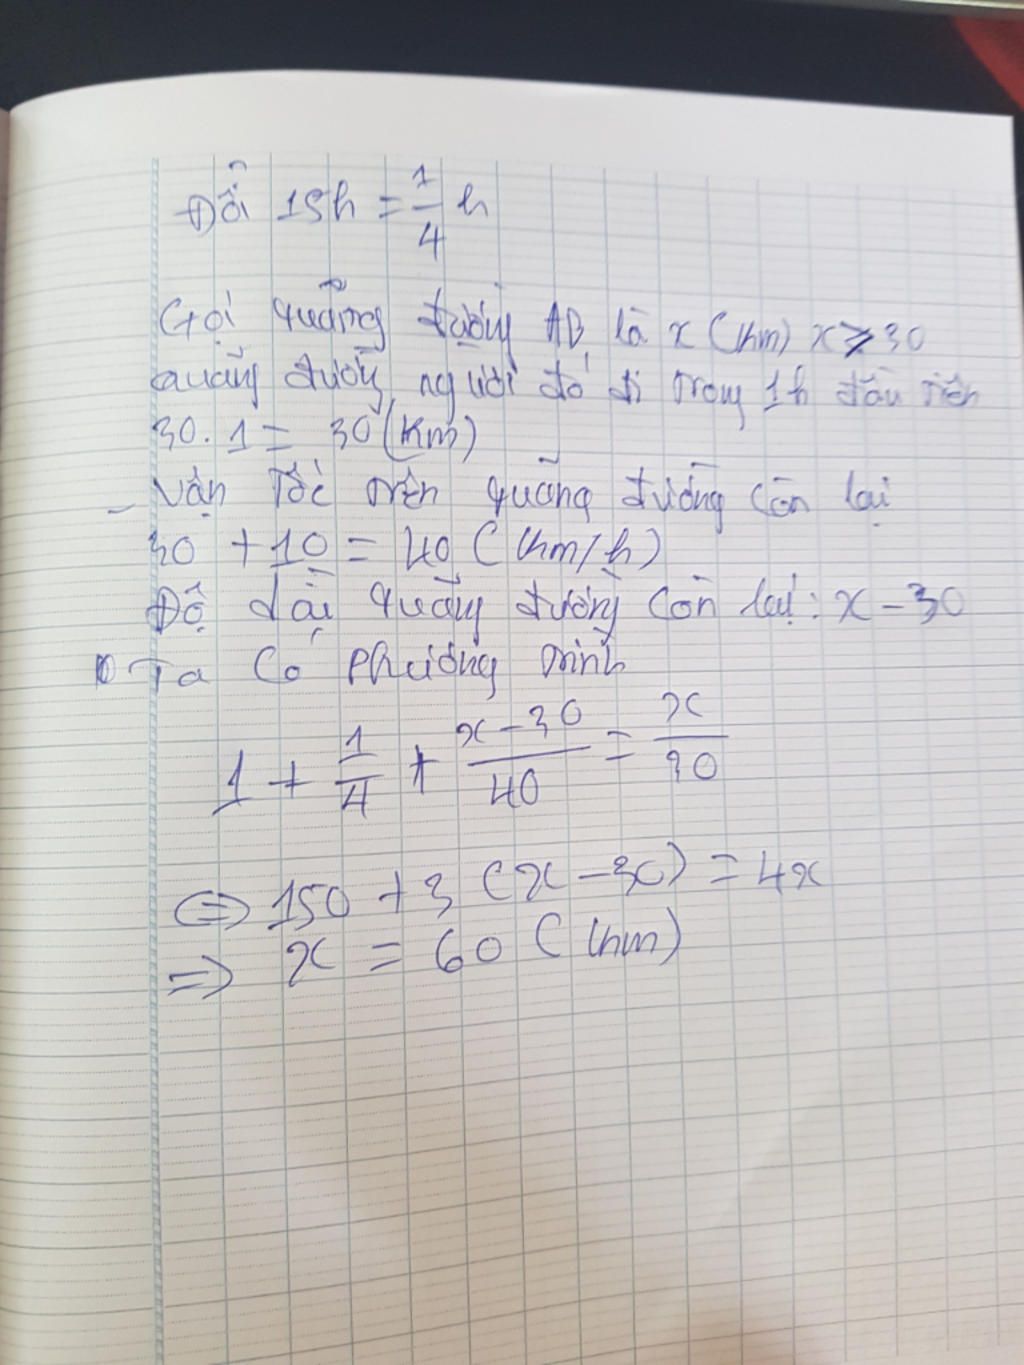 Đổi 15h = 1/4 h
Gọi quãng đường AB là x (km) x ≥ 30
quãng đường người đó đi trong 1h đầu tiên
30. 1 = 30 (Km)
- Vận Tốc trên quãng đường còn lại
30 + 10 = 40 (km/h)
Độ dài quãng đường còn lại: x - 30
Ta có phương trình
1 + 1/4 + (x - 30)/40 = x/30
⇔ 150 + 3 (x - 30) = 4x
⇒ x = 60 (km)